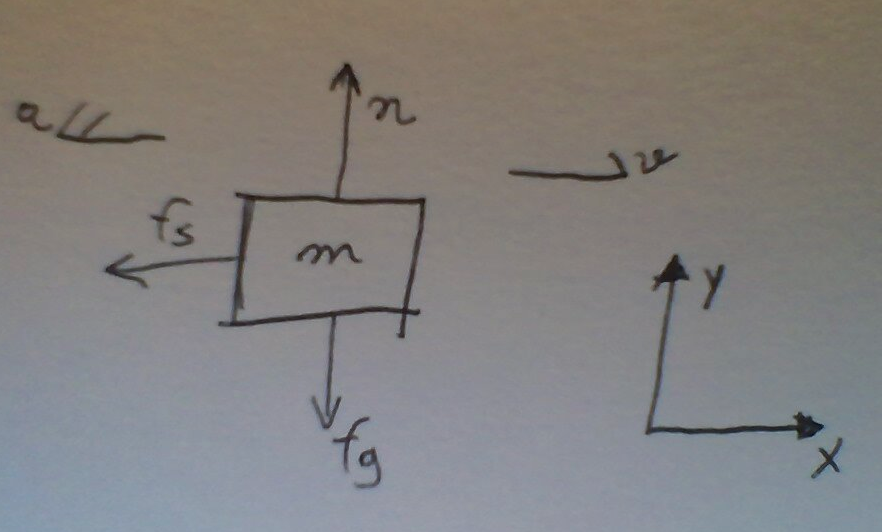 a
n
v
fs
m
y
fg
x